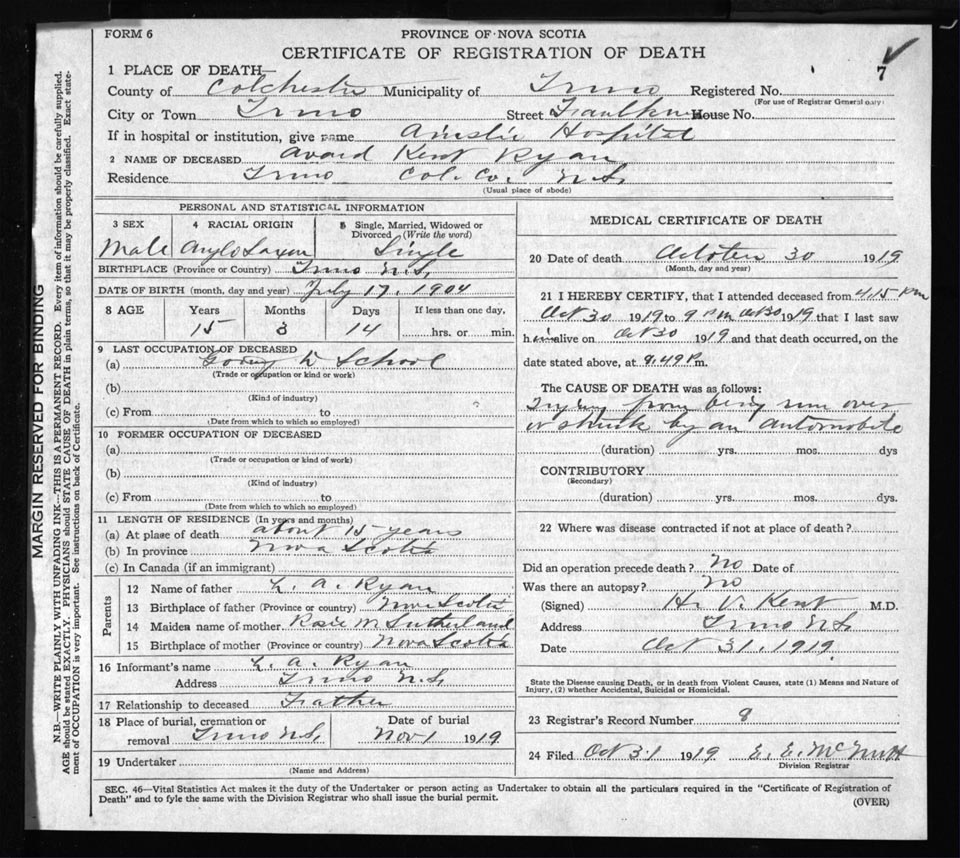 FORM 6
PROVINCE OF NOVA SCOTIA
CERTIFICATE OF REGISTRATION OF DEATH
7
1 PLACE OF DEATH—
County of Colchester Municipality of Truro Registered No.
(For use of Registrar General only)
City or Town Truro Street Faulkner House No.
If in hospital or institution, give name Ainslie Hospital
2 NAME OF DECEASED Avard Kent Ryan
Residence Truro Col. Co. N.S.
(Usual place of abode)
PERSONAL AND STATISTICAL INFORMATION
3 SEX 4 RACIAL ORIGIN 5 Single, Married, Widowed or Divorced (Write the word)
Male Anglo Saxon Single
BIRTHPLACE (Province or Country) Truro N.S.
DATE OF BIRTH (month, day and year) July 17, 1904
8 AGE Years Months Days If less than one day,
15 3 14 hrs. or min.
9 LAST OCCUPATION OF DECEASED
(a) Going to School
(Trade or occupation or kind or work)
(b)
(Kind of industry)
(c) From to
(Date from which to which so employed)
10 FORMER OCCUPATION OF DECEASED
(a)
(Trade or occupation or kind of work)
(b)
(Kind of industry)
(c) From to
(Date from which to which so employed)
11 LENGTH OF RESIDENCE (In years and months)
(a) At place of death about 15 years
(b) In province Nova Scotia
(c) In Canada (if an immigrant)
Parents
12 Name of father L. A. Ryan
13 Birthplace of father (Province or country) Nova Scotia
14 Maiden name of mother Rosie M Sutherland
15 Birthplace of mother (Province or country) Nova Scotia
16 Informant's name L. A. Ryan
Address Truro N.S.
17 Relationship to deceased Father
18 Place of burial, cremation or removal Truro N.S.
Date of burial Nov 1 1919
19 Undertaker
(Name and Address)
MEDICAL CERTIFICATE OF DEATH
20 Date of death October 30 1919
(Month, day and year)
21 I HEREBY CERTIFY, that I attended deceased from 4.15 Pm
Oct 30 1919 to 9 P.m. Oct 30 1919 that I last saw
him alive on Oct 30 1919 and that death occurred, on the
date stated above, at 9.49 P.m.
The CAUSE OF DEATH was as follows:
Injury from being run over
or struck by an automobile
(duration) yrs. mos. dys
CONTRIBUTORY
(Secondary)
(duration) yrs. mos. dys.
22 Where was disease contracted if not at place of death?
Did an operation precede death? No Date of
Was there an autopsy? No
(Signed) H. V. Kent M.D.
Address Truro N.S.
Date Oct 31, 1919
State the Disease causing Death, or in death from Violent Causes, state (1) Means and Nature of
Injury, (2) whether Accidental, Suicidal or Homicidal.
23 Registrar's Record Number 8
24 Filed Oct 31 1919 E. E. McNutt
Division Registrar
SEC. 46—Vital Statistics Act makes it the duty of the Undertaker or person acting as Undertaker to obtain all the particulars required in the "Certificate of Registration of
Death" and to fyle the same with the Division Registrar who shall issue the burial permit.
(OVER)
MARGIN RESERVED FOR BINDING
N.B.—WRITE PLAINLY WITH UNFADING INK—THIS IS A PERMANENT RECORD. Every item of information should be carefully supplied.
AGE should be stated EXACTLY. PHYSICIANS should STATE CAUSE OF DEATH in plain terms, so that it may be properly classified. Exact state-
ment of OCCUPATION is very important. See instructions on back of Certificate.